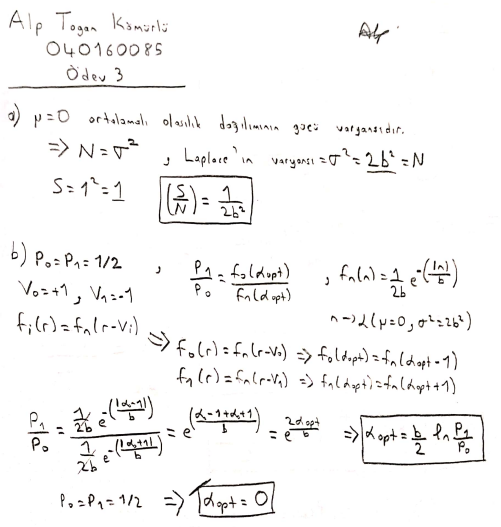 Alp Togan Kömürlü
040160085
Ödev 3
a) μ=0 ortalamalı olasılık dağılımının gücü varyansıdır.
⇒ N=σ² , Laplace'ın varyansı=σ²=2b²=N
S=1²=1 (S/N) = 1/2b²
b) P₀=P₁=1/2 , P₁/P₀ = f₀(αopt)/f₁(αopt) , fₙ(n)=1/2b e^-(|n|/b)
V₀=+1, V₁=-1 n→L(μ=0, σ²=2b²)
fᵢ(r)=fₙ(r-Vᵢ) ⇒ f₀(r)=fₙ(r-V₀) ⇒ f₀(αopt)=fₙ(αopt-1)
f₁(r)=fₙ(r-V₁) ⇒ f₁(αopt)=fₙ(αopt+1)
P₁/P₀ = (1/2b e^-(|α-1|/b))/(1/2b e^-(|α+1|/b)) = e^((α-1+α+1)/b) = e^(2αopt/b) ⇒ αopt = b/2 ln P₁/P₀
P₀=P₁=1/2 ⇒ αopt=0